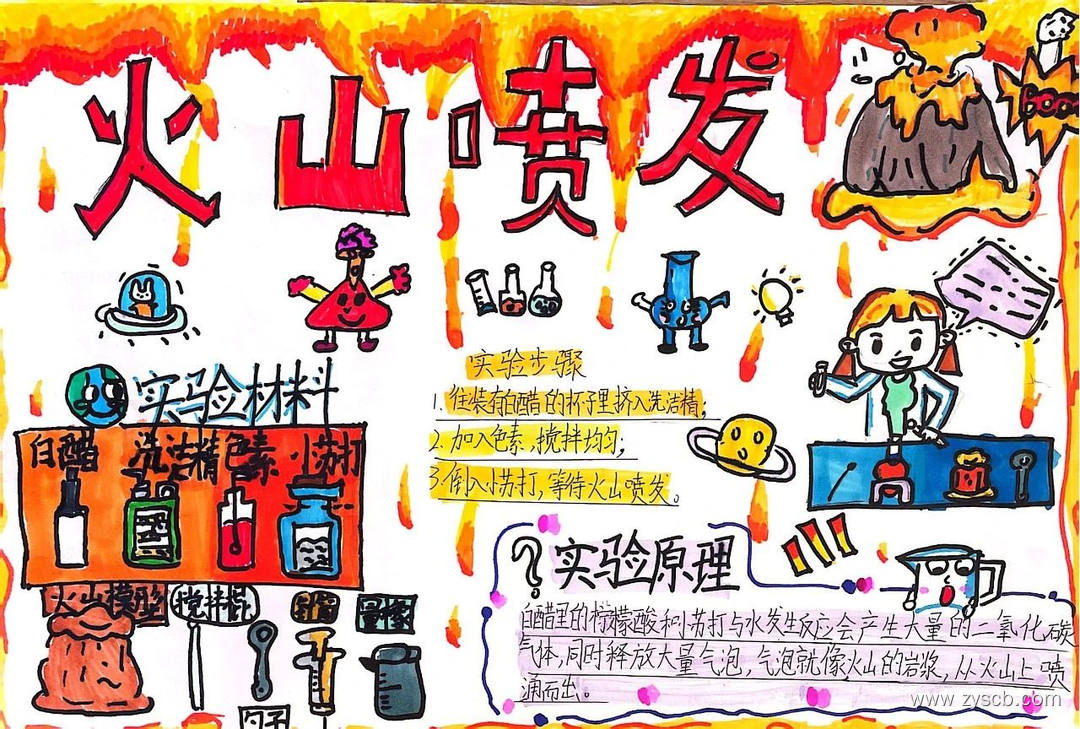 火山喷发
boom
实验材料
白醋 洗洁精 色素 小苏打
火山模型 搅拌棍 量杯
勺子
实验步骤
1. 往装有白醋的杯子里挤入洗洁精;
2. 加入色素,搅拌均匀;
3. 倒入小苏打,等待火山喷发。
?实验原理
白醋里的柠檬酸和小苏打与水发生反应会产生大量的二氧化碳
气体,同时释放大量气泡,气泡就像火山的岩浆,从火山上喷
涌而出。
www.zyscb.com